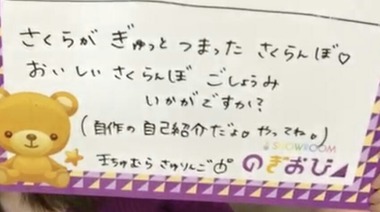 さくらが ぎゅっと つまった さくらんぼ♡
おいしい さくらんぼ ごしょうみ
いかがですか?
(自作の自己紹介だよ。やってね。)
SHOWROOM
王ちゅむら さゅりんご
のぎおび